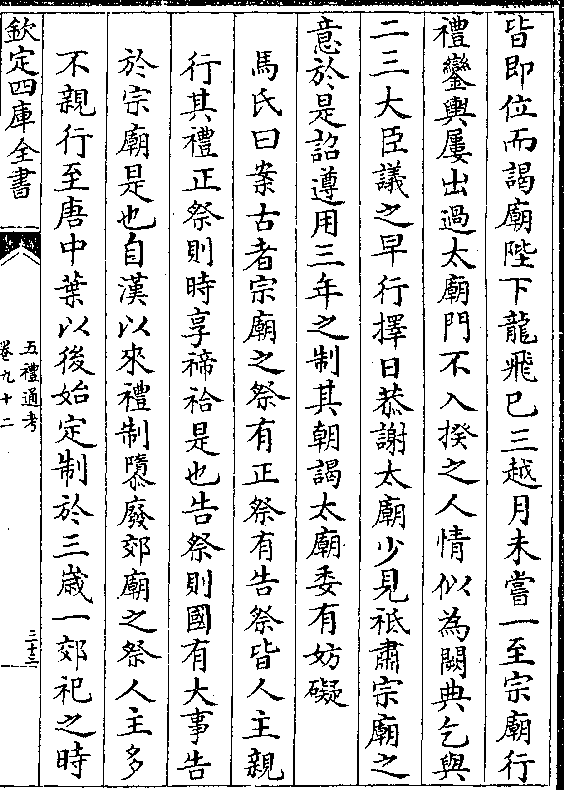 皆即位而謁廟陛下龍飛已三越月未嘗一至宗廟行
禮鑾輿屢出過太廟門不入揆之人情似為闕典乞與
二三大臣議之早行擇日恭謝太廟少見祗肅宗廟之
意於是詔遵用三年之制其朝謁太廟委有妨礙
馬氏曰案古者宗廟之祭有正祭有告祭皆人主親
行其禮正祭則時享禘祫是也告祭則國有大事告
於宗廟是也自漢以來禮制隳廢郊廟之祭人主多
不親行至唐中葉以後始定制於三歲一郊祀之時
欽定四庫全書
五禮通考
卷九十二
三十三